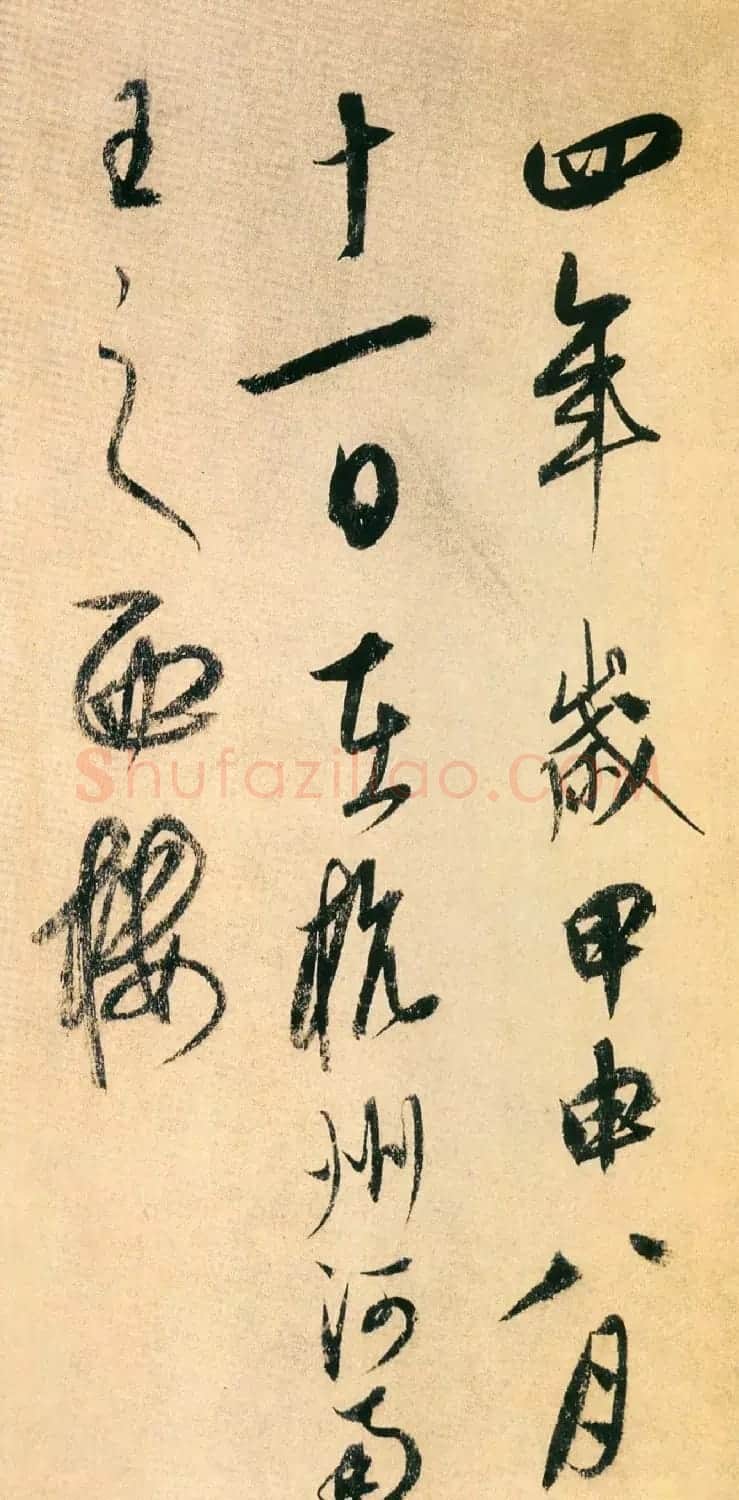 四年歲甲申八月
十一日在杭州河南
王之西樓
Shufaziliao.com